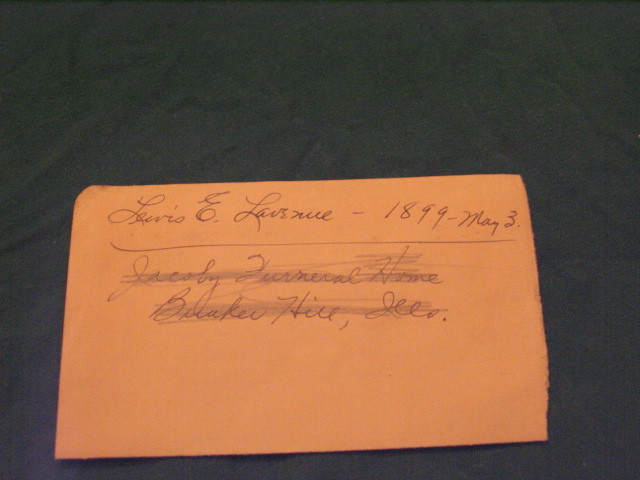 Lewis E. Lavenue - 1899 - May 3.
Jacoby Furneral Home
Bunker Hill, Ills.